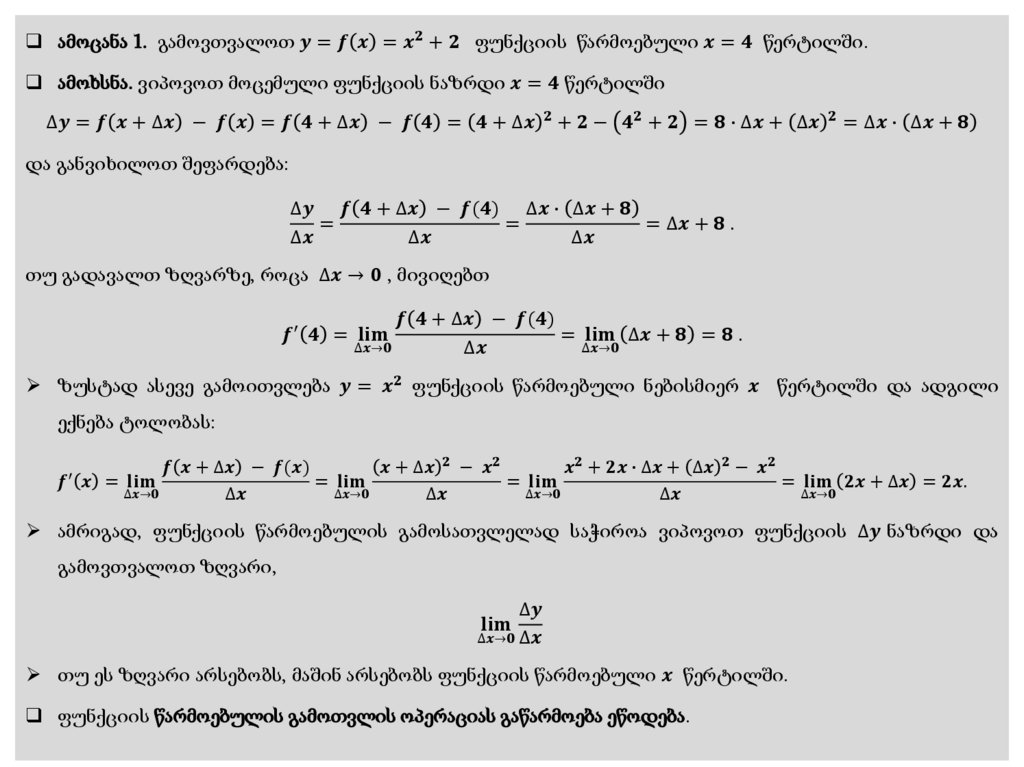 ❑ ამოცანა 1. გამოვთვალოთ y = f(x) = x² + 2 ფუნქციის წარმოებული x = 4 წერტილში.
❑ ამოხსნა. ვიპოვოთ მოცემული ფუნქციის ნაზრდი x = 4 წერტილში
∆y = f(x + ∆x) − f(x) = f(4 + ∆x) − f(4) = (4 + ∆x)² + 2 − (4² + 2) = 8 · ∆x + (∆x)² = ∆x · (∆x + 8)
და განვიხილოთ შეფარდება:
∆y/∆x = (f(4 + ∆x) − f(4))/∆x = (∆x · (∆x + 8))/∆x = ∆x + 8 .
თუ გადავალთ ზღვარზე, როცა ∆x → 0 , მივიღებთ
f′(4) = lim ∆x→0 (f(4 + ∆x) − f(4))/∆x = lim ∆x→0 (∆x + 8) = 8 .
➢ ზუსტად ასევე გამოითვლება y = x² ფუნქციის წარმოებული ნებისმიერ x წერტილში და ადგილი
ექნება ტოლობას:
f′(x) = lim ∆x→0 (f(x + ∆x) − f(x))/∆x = lim ∆x→0 ((x + ∆x)² − x²)/∆x = lim ∆x→0 (x² + 2x · ∆x + (∆x)² − x²)/∆x = lim ∆x→0 (2x + ∆x) = 2x.
➢ ამრიგად, ფუნქციის წარმოებულის გამოსათვლელად საჭიროა ვიპოვოთ ფუნქციის ∆y ნაზრდი და
გამოვთვალოთ ზღვარი,
lim ∆x→0 ∆y/∆x
➢ თუ ეს ზღვარი არსებობს, მაშინ არსებობს ფუნქციის წარმოებული x წერტილში.
❑ ფუნქციის წარმოებულის გამოთვლის ოპერაციას გაწარმოება ეწოდება.